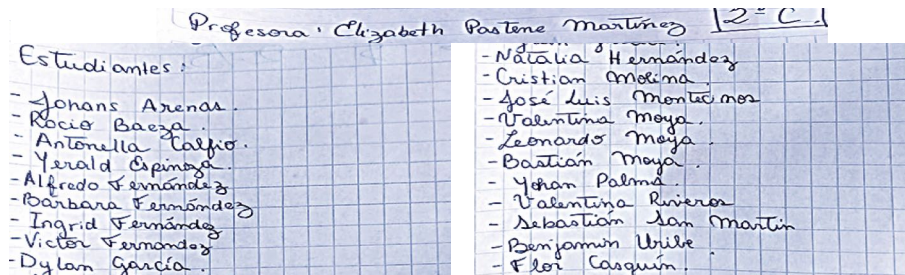 Profesora: Elizabeth Pastene Martínez 2º C.
Estudiantes:
- Jonans Arenas.
- Rocío Baeza.
- Antonella Calfio.
- Yerald Espinoza.
- Alfredo Fernández
- Bárbara Fernández
- Ingrid Fernández
- Victor Fernandez
- Dylan García.
- Natalia Hernández
- Cristian Molina.
- José Luis Montecinos
- Valentina Moya.
- Leonardo Moya.
- Bastián Moya.
- Yohan Palma.
- Valentina Riveros
- Sebastián San Martin
- Benjamin Uribe.
- Flor Casquín.